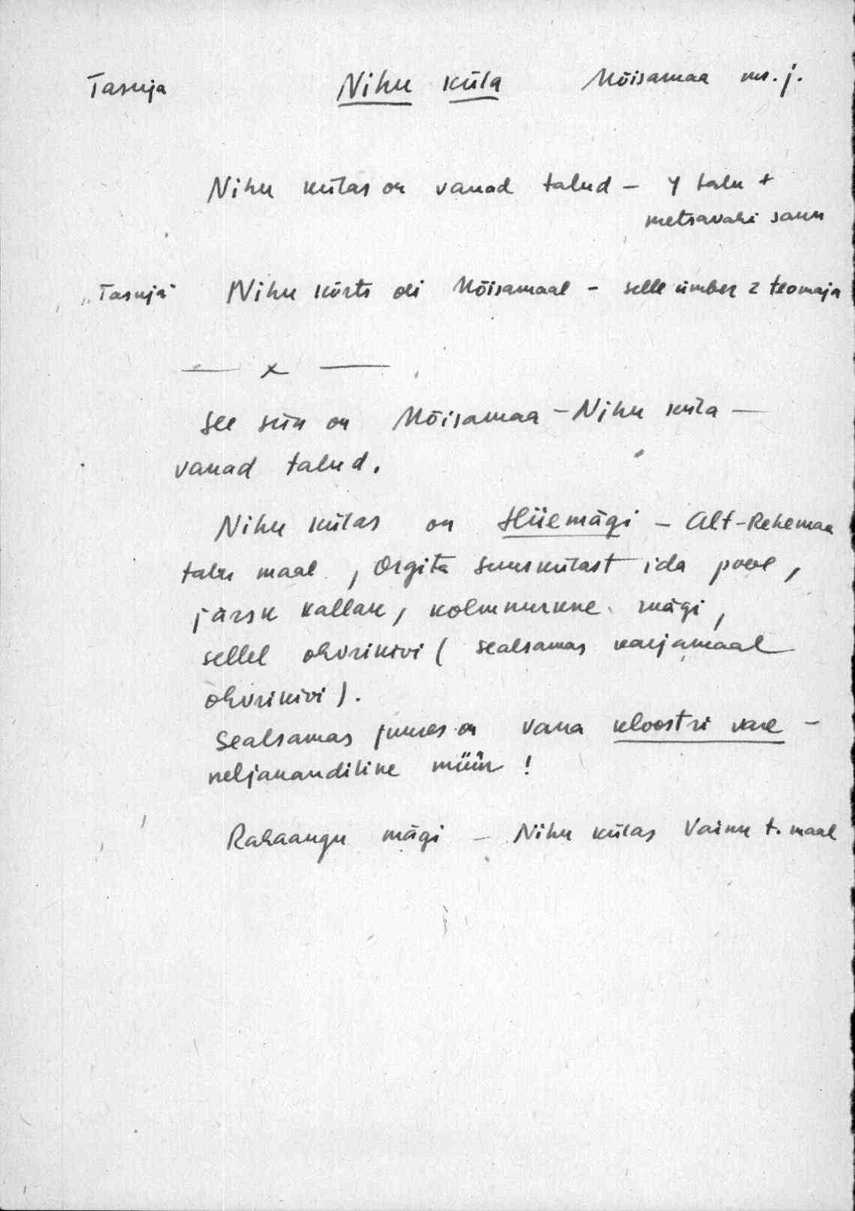 Tasuja Nihu küla Mõisamaa ms. j.
Nihu külas on vanad talud – 4 talu +
metsavahi saun
"Tasuja" Nihu kõrts oli Mõisamaal – selle ümber 2 teomaja
— x —
See siin on Mõisamaa – Nihu küla –
vanad talud.
Nihu külas on Hiiemägi – Alt-Rehemaa
talu maal, Orgita suurkülast ida pool,
järsk kallak, kolmnurkne mägi,
sellel ohvrikivi (sealsamas karjamaal
ohvrikivi).
Sealsamas juures on vana kloostri vare –
neljakandiline müür!
Rahaaugu mägi – Nihu külas Vainu t. maal